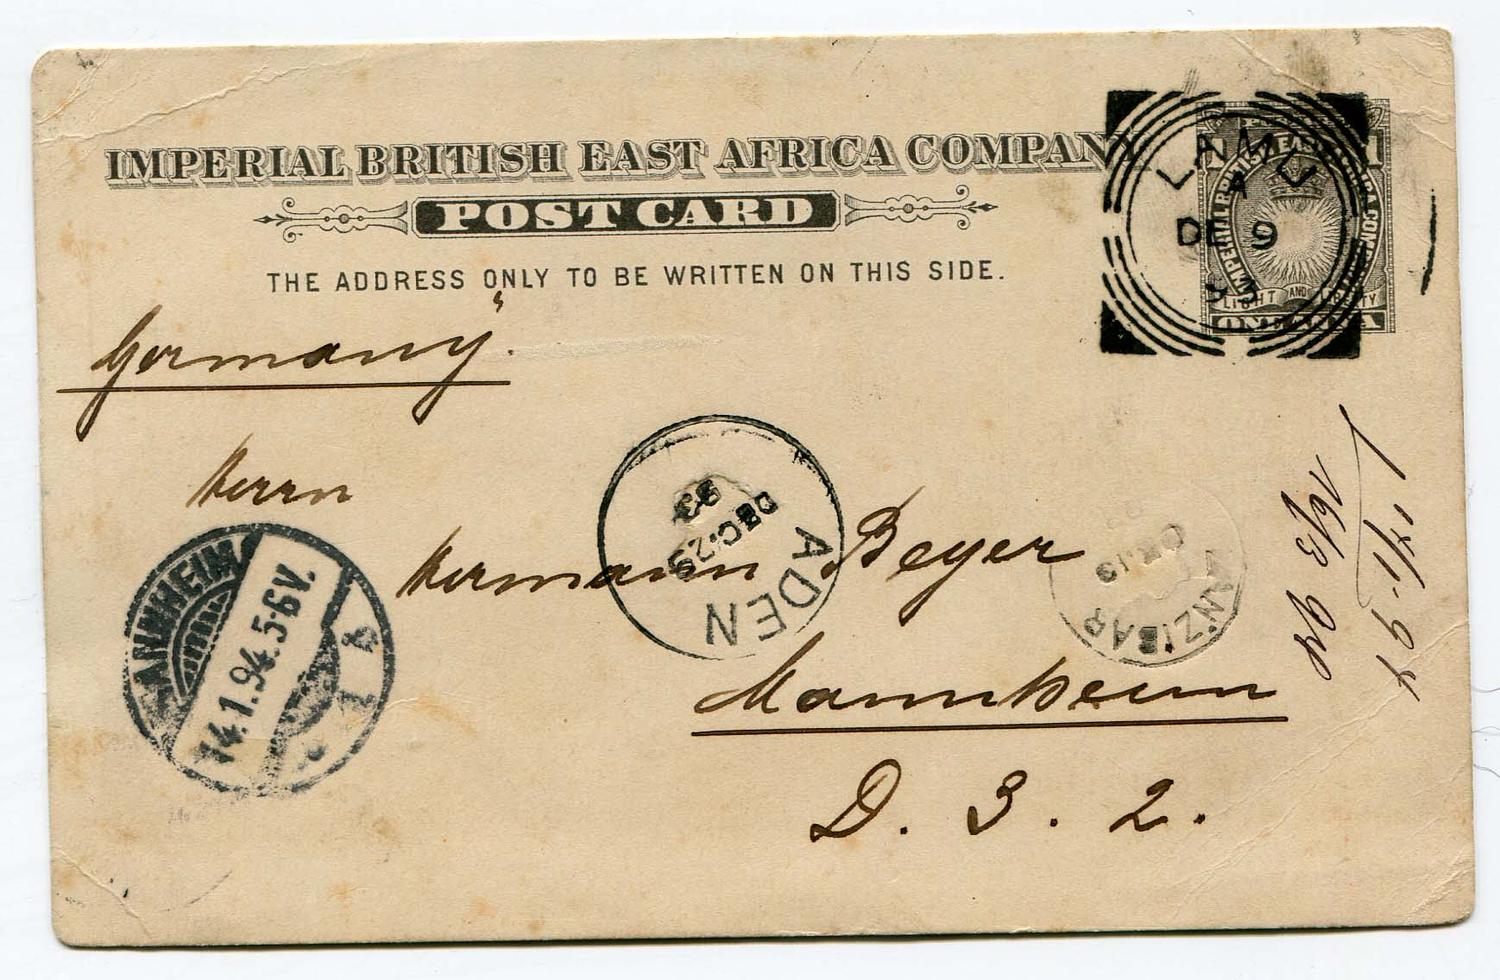 IMPERIAL BRITISH EAST AFRICA COMPANY
POST CARD
THE ADDRESS ONLY TO BE WRITTEN ON THIS SIDE.
LAMU
A
DE 9
93
1
IMPERIAL BRITISH EAST AFRICA COMPANY
LIGHT AND LIBERTY
ONE ANNA
Germany.
Herrn
Hermann Beyer
Mannheim
D. 3. 2.
ADEN
DEC.29
93
ZANZIBAR
DE 19
MANNHEIM
14.1.94.5-6V.
1
16/3 94